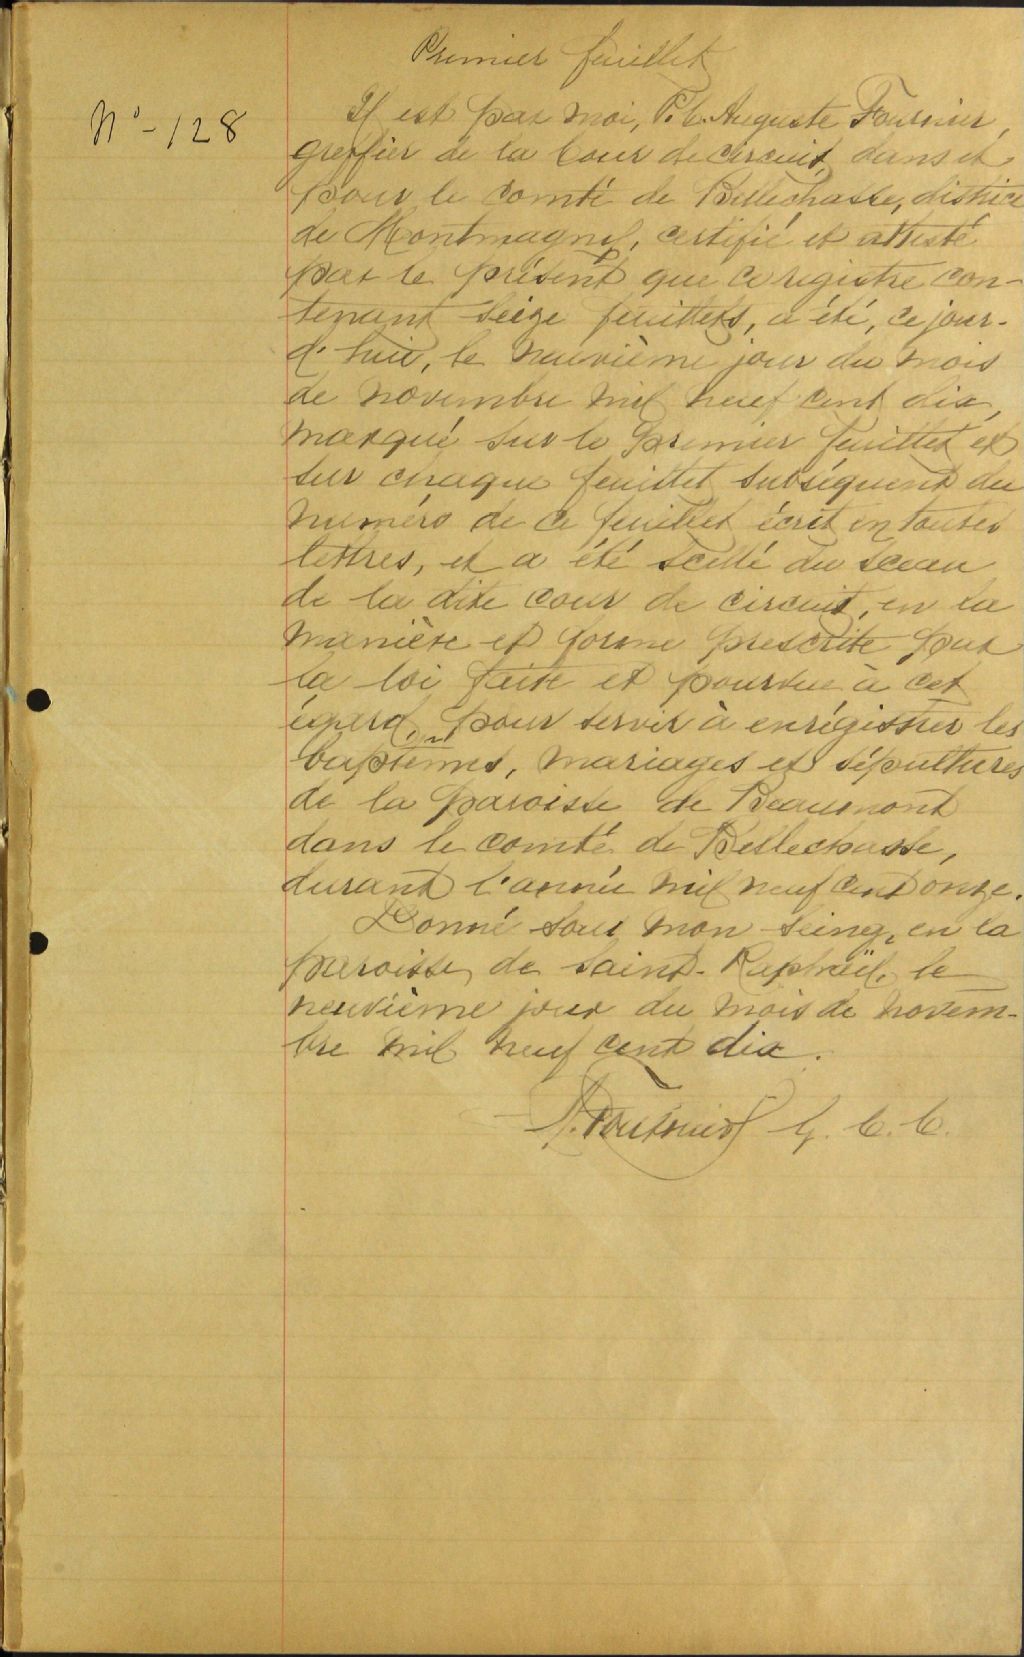 Premier feuillet
N° - 128
Il est par moi, P. C. Auguste Fournier,
greffier de la Cour de circuit, dans et
pour le comté de Bellechasse, district
de Montmagny, certifié et attesté
par le présent que ce registre con-
tenant seize feuillets, a été, ce jour-
d'hui, le neuvième jour du mois
de novembre mil neuf cent dix,
marqué sur le premier feuillet et
sur chaque feuillet subséquent du
numéro de ce feuillet écrit en toutes
lettres, et a été scellé du sceau
de la dite cour de circuit, en la
manière et forme prescrite par
la loi faite et pourvue à cet
égard, pour servir à enrégistrer les
baptêmes, mariages et sépultures
de la paroisse de Beaumont
dans le comté de Bellechasse,
durant l'année mil neuf cent onze.
Donné sous mon seing, en la
paroisse de Saint-Raphaël, le
neuvième jour du mois de novem-
bre mil neuf cent dix.
A. Fournier G. C. C.